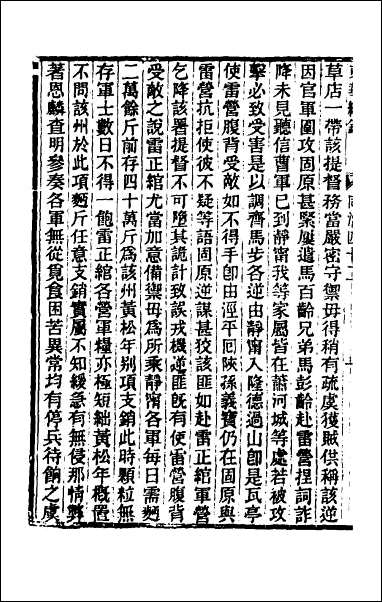 草店一帶該提督務當嚴密守禦毋得稍有疏虞獲賊供稱該逆
因官軍圍攻固原甚緊屢遣馬百齡兄弟馬彭齡赴雷營捏詞詐
降未見聽信曹軍已到靜甯我等家屬皆在蕭河城等處若被攻
擊必致受害與其調齊馬步各逆由靜甯入隆德過山卽是瓦亭
使雷營腹背受敵如不得手卽由涇平回陝孫義寶仍在固原與
雷營抗拒使彼不疑等語固原逆謀甚狡該匪如赴雷正綰軍營
乞降該署提督不可墮其詭計致誤戎機逆匪旣有使雷營腹背
受敵之說雷正綰尤當加意備禦毋爲所乘靜甯各軍每日需麪
二萬餘斤前存四十萬斤爲該州黃松年別項支銷此時顆粒無
存軍士數日不得一飽雷正綰各營軍糧亦極短絀黃松年槪置
不問該州於此項麪斤任意支銷實屬不知緩急有無侵那情弊
著恩麟查明參奏各軍無從覓食困苦異常均有停兵待餉之虞